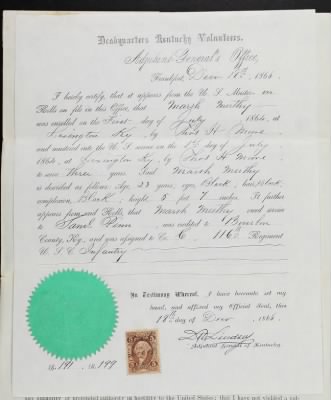 Headquarters Kentucky Volunteers.
Adjutant General's Office,
Frankfort, Decr 18th, 1866.
I hereby certify, that it appears from the U S Muster-in
Rolls on file in this Office, that Marsh
was enrolled on the First day of July 1864, at
Lexington Ky, by Thos H
and mustered into the U S service on the 1st day of July
1864, at Lexington Ky, by Thos H
to serve three years. Said Marsh
is described as follows: Age 23 years, eyes Black, hair Black,
complexion Black, height 5 feet 7 inches. It further
appears from said Rolls, that Marsh
to Saml was credited to Bourbon
County, Ky., and was assigned to Co. C 116th Regiment
U. S. C. Infantry
In Testimony Whereof, I have hereunto set my
hand, and affixed my Official Seal, this
18th day of Decr 1866.
D W Lindsey
Adjutant General of Kentucky